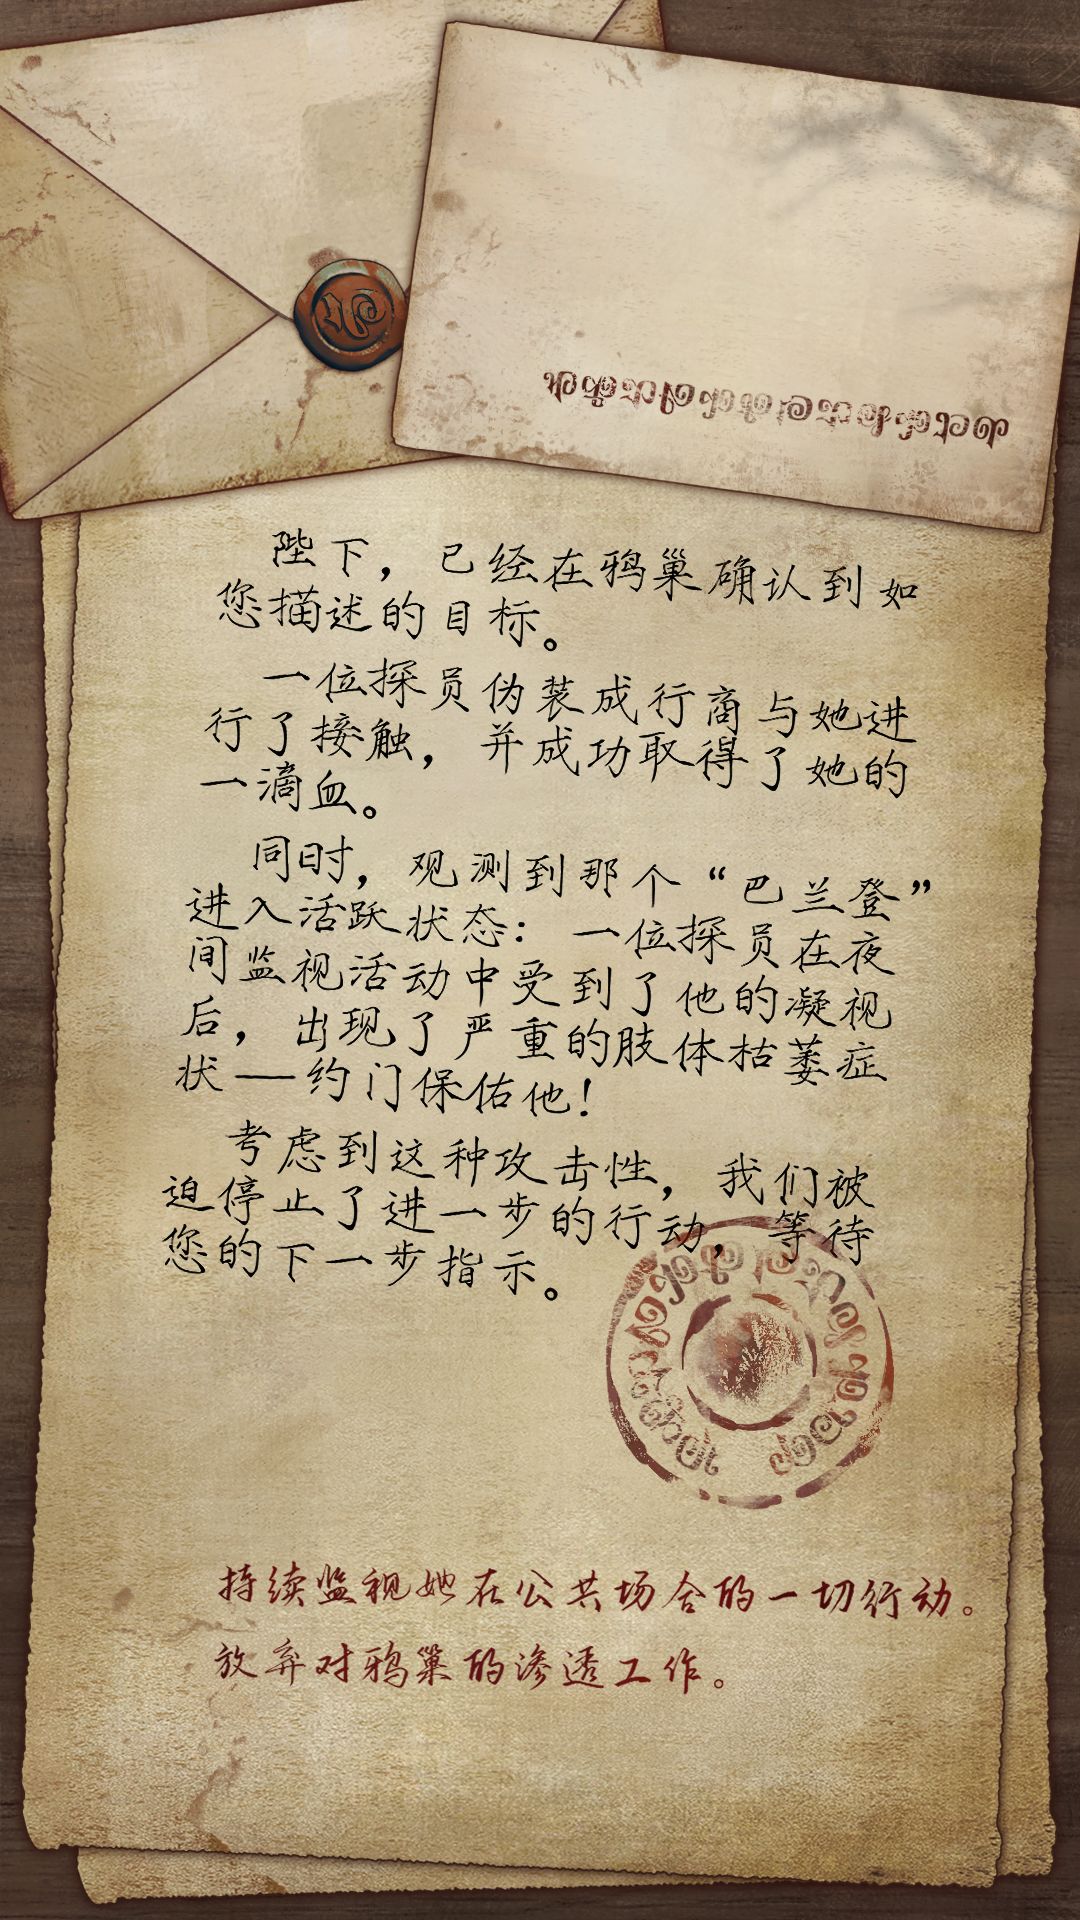 陛下，已经在鸦巢确认到如
您描述的目标。
一位探员伪装成行商与她进
行了接触，并成功取得了她的
一滴血。
同时，观测到那个“巴兰登”
进入活跃状态：一位探员在夜
间监视活动中受到了他的凝视
后，出现了严重的肢体枯萎症
状——约门保佑他！
考虑到这种攻击性，我们被
迫停止了进一步的行动，等待
您的下一步指示。
持续监视她在公共场合的一切行动。
放弃对鸦巢的渗透工作。